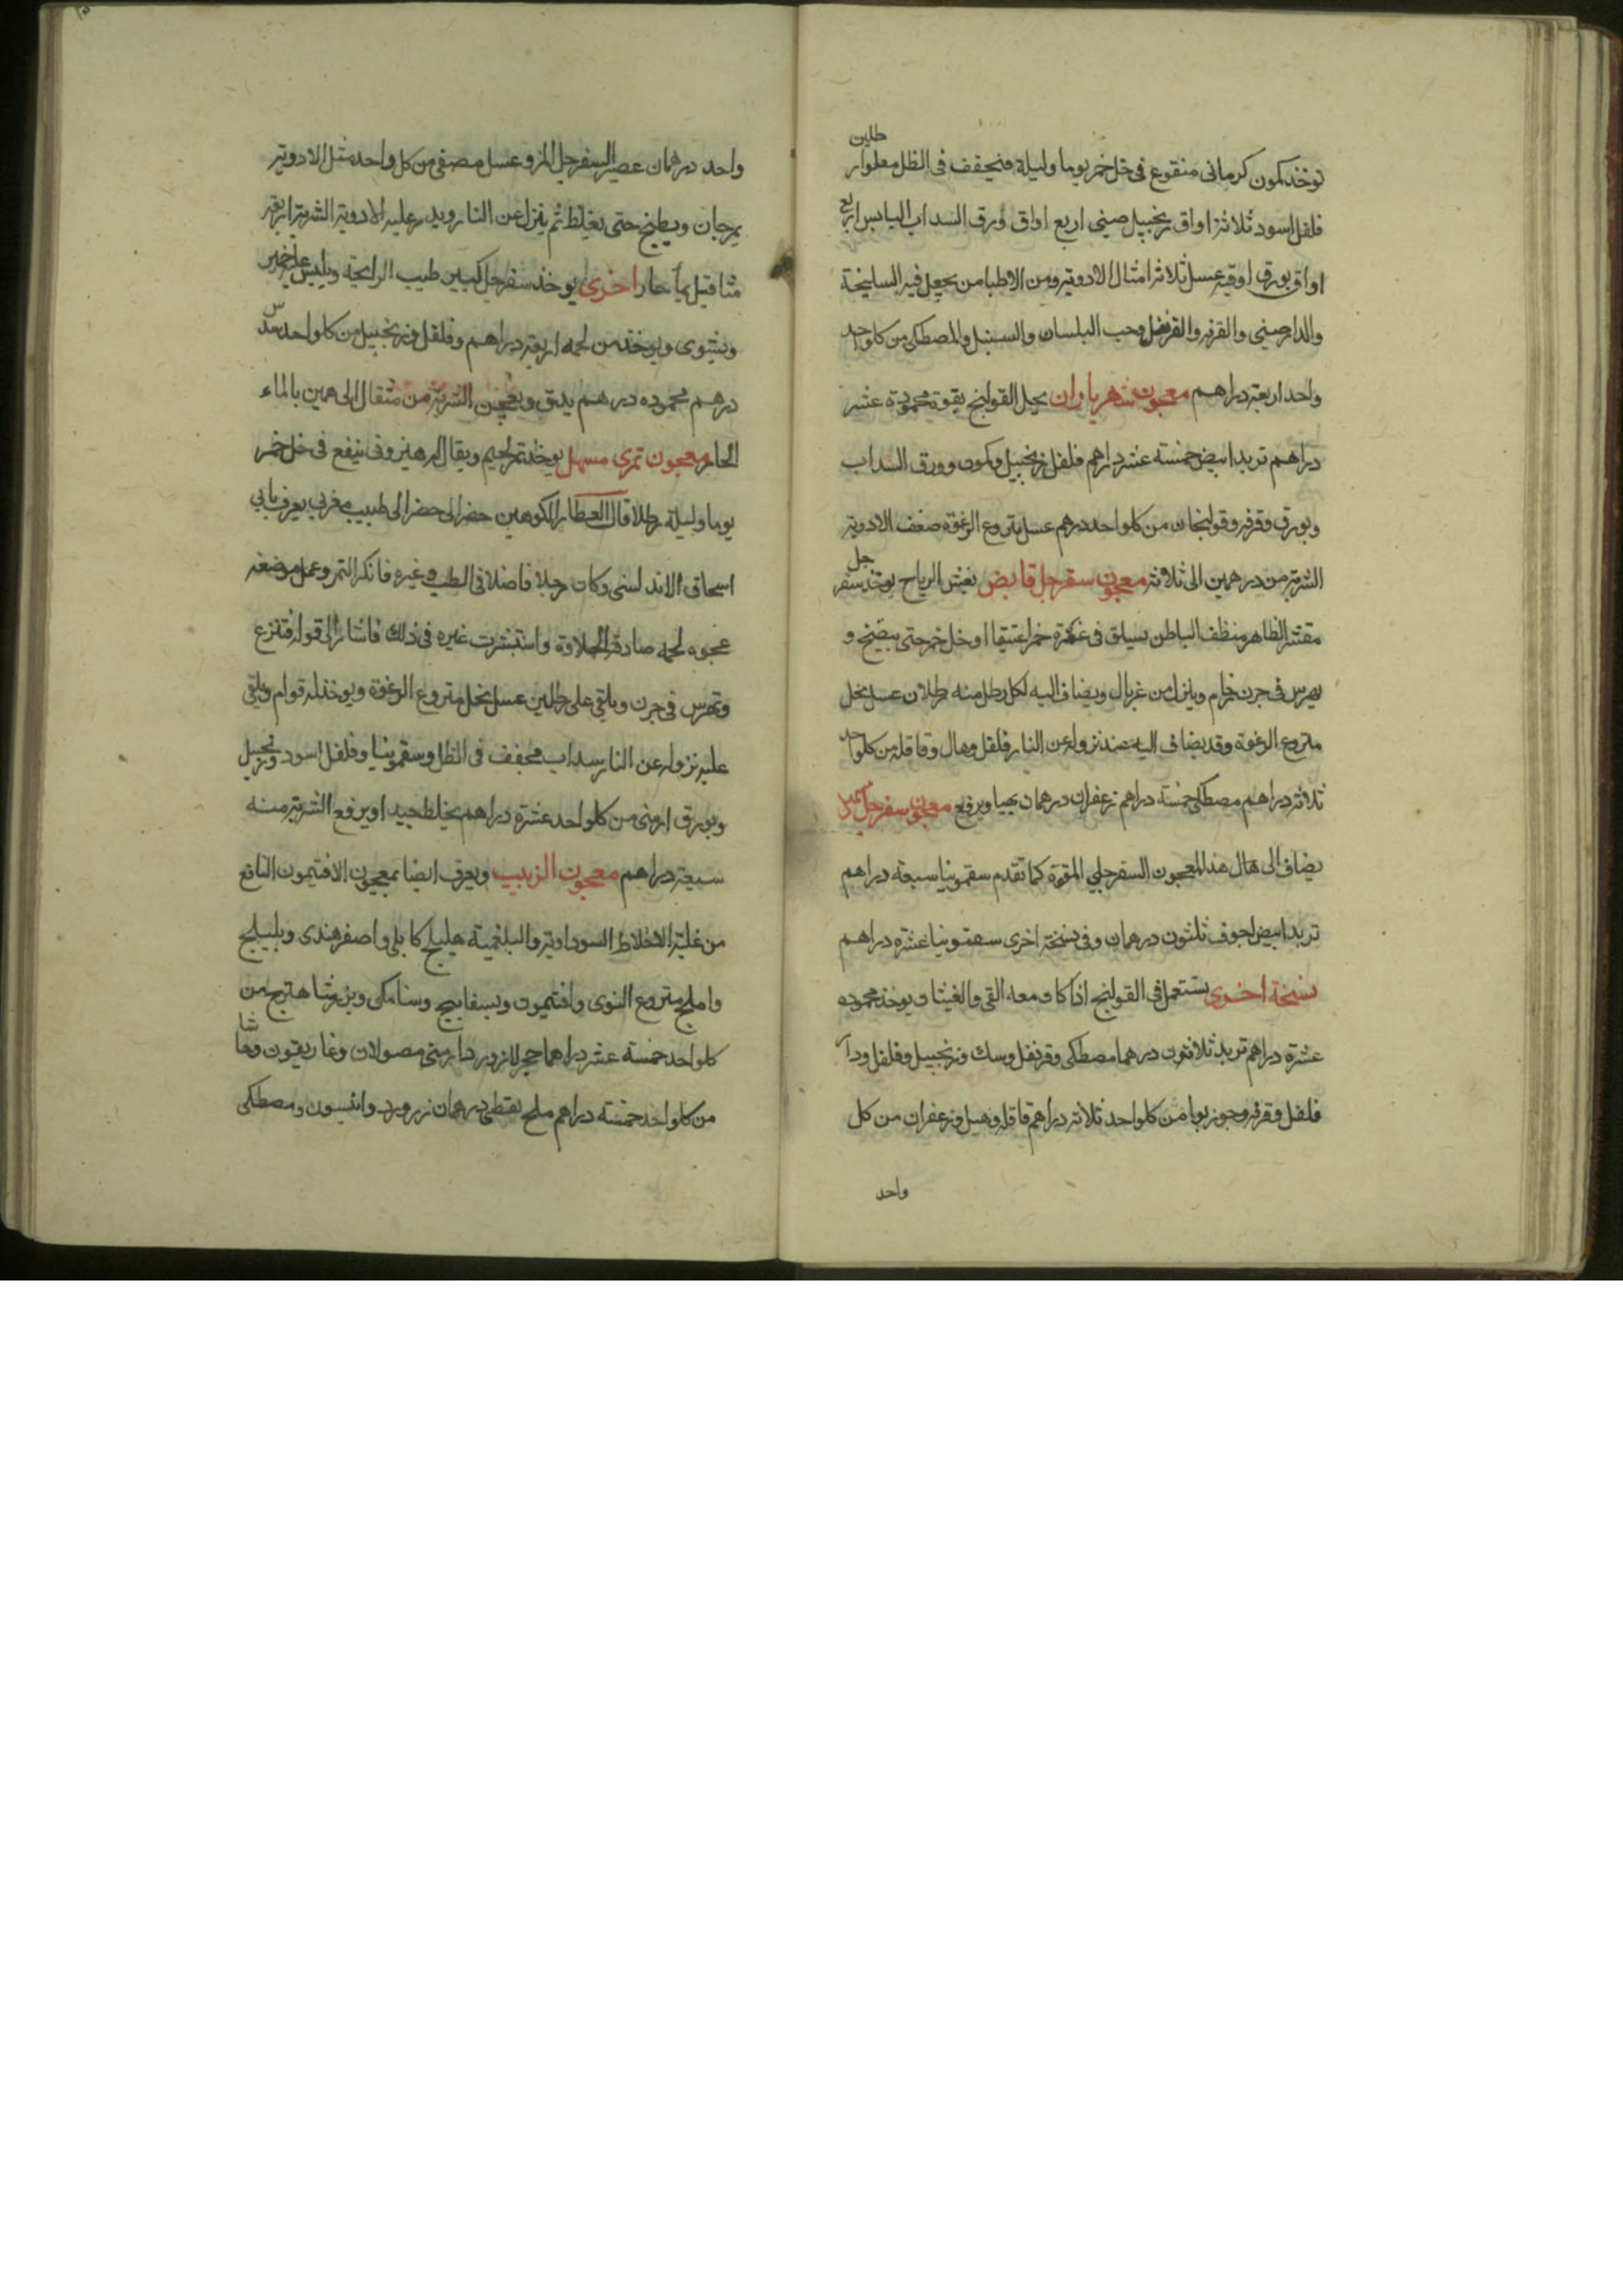 توخذ كمون كرمانى منقوع فى خل خمر يوما وليلة فيجفف فى الظل مغلوا رطلين
فلفل اسود ثلاثة اواق زنجبيل صينى اربع اواق ورق السداب اليابس اربع
اواق بورق اوقية عسل ثلاثة امثال الادوية ومن الاطبا من يجعل فيه السليخة
والدارصينى والقرفه والقرنفل وحب البلسان والسنبل والمصطكى من كل واحد
واحد اربعة دراهم معجون شهرياران يحل القولنج بقوة محمودة عشر
دراهم تربد ابيض خمسة عشر دراهم فلفل زنجبيل وكمون وورق السداب
وبورق وقرفه وقولنجان من كلواحد درهم عسل منزوع الرغوة ضعف الادوية
الشربة من درهمين الى ثلاثة معجون سفرجل قابض يفش الرياح يوخذ سفرجل
مقشر الظاهر منظف الباطن يسلق فى غمره خمرا عتيقا او خل خمر حتى ينضج و
يهرس فى جرن خام وينزل من غربال ويضاف اليه لكل رطل منه رطلان عسل نحل
منزوع الرغوة وقد يضاف اليه عند نزوله عن النار فلفل وهال وقاقله من كلواحد
ثلاثة دراهم مصطكى خمسة دراهم زعفران درهمان ويرفع معجون سفرجل
يضاف الى هال هذا المعجون السفرجلى المقوة كما تقدم سقمونيا سبعة دراهم
تربد ابيض اجوف ثلثون درهمان وفى نسخة اخرى سقمونيا عشرة دراهم
نسخة اخرى يستعمل فى القولنج اذا كان معه القى والغيثان يوخذ محموده
عشرة دراهم تربد ثلاثون درهما مصطكى وقرنفل وسك وزنجبيل وفلفل ودار
فلفل وقرفه وجوزبوا من كلواحد ثلاثة دراهم قاقله وهيل وزعفران من كل
واحد
واحد درهمان عصير السفرجل المز وعسل مصفى من كل واحد مثل الادوية
يمزجان ويطبخ حتى يغلظ ثم ينزل عن النار ويذر عليه الادوية الشربة اربعة
مثاقيل بماء حار اخرى يوخذ سفرجل كبير طيب الرايحة ويلبس عليه خمير
ويشوى ويوخذ من لحمه اربعة دراهم وفلفل وزنجبيل من كلواحد سدس
درهم محموده درهم يدق ويعجن الشربة من مثقال الى درهمين بالماء
الحار معجون تمرى مسهل يوخذ تمر لحيم ويقال له هيرون ينقع فى خل خمر
يوما وليلة رطلا قال العطار الكوهين حضر الى حضر الى طبيب مغربى يعرف بابى
اسحاق الاندلسى وكان رجلا فاضلا فى الطب وغيره فانكر التمر وعمل موضعه
عجوه لحمه صادقة الحلاوة واستشرت غيره فى ذلك فاشار الى قوله فتنزع
وتهرس فى جرن ويلقى على رطلين عسل نحل منزوع الرغوة ويوخذ له قوام ويلقى
عليه نزوله عن النار سداب مجفف فى الظل وسقمونيا وفلفل اسود وزنجبيل
وبورق ارمنى من كلواحد عشرة دراهم يخلط جيدا ويرفع الشربة منه
سبعة دراهم معجون الزبيب ويعرف ايضا بمعجون الافتيمون النافع
من غلبة الاخلاط السوداوية والبلغمية هليلج كابلى واصفر هندى وبليلج
واملج منزوع النوى وافتيمون وبسفايج وسنا مكى وبزر شاهترج من
كلواحد خمسة عشر دراهما حجر لازورد ارمنى مصولان وغاريقون وحاشا
من كلواحد خمسة دراهم ملح نفطى درهمان زر ورد وانيسون ومصطكى